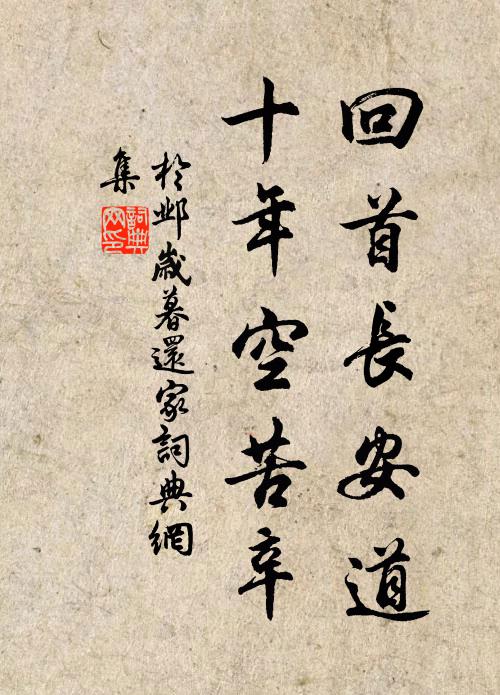 回首長安道
十年空苦辛
於鄴歲暮還家詞典網
集
詞典
网印